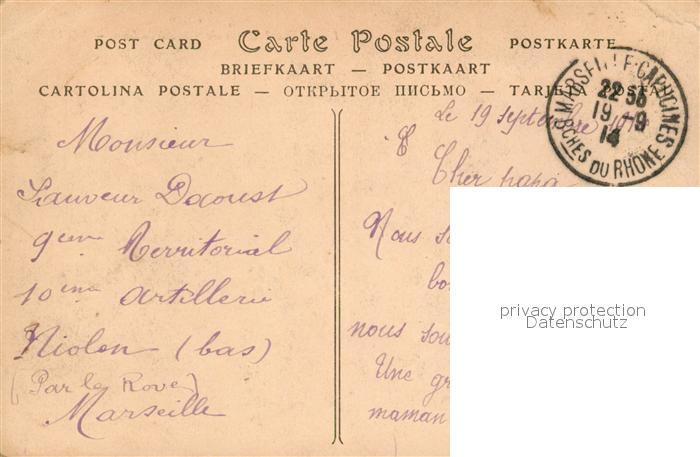 POST CARD Carte Postale POSTKARTE
BRIEFKAART — POSTKAART
CARTOLINA POSTALE — ОТКРЫТОЕ ПИСЬМО — TARJETA POSTAL
MARSEILLE-CAPUCINES
22 55
19 - 9
14
BCHES DU RHÔNE
Monsieur
Sauveur Daoust
9eme Territorial
10eme Artillerie
Niolon (bas)
(Par le Rove)
Marseille
Le 19 septembre 1914
Cher papa
Nous
nous
Une
maman
privacy protection
Datenschutz